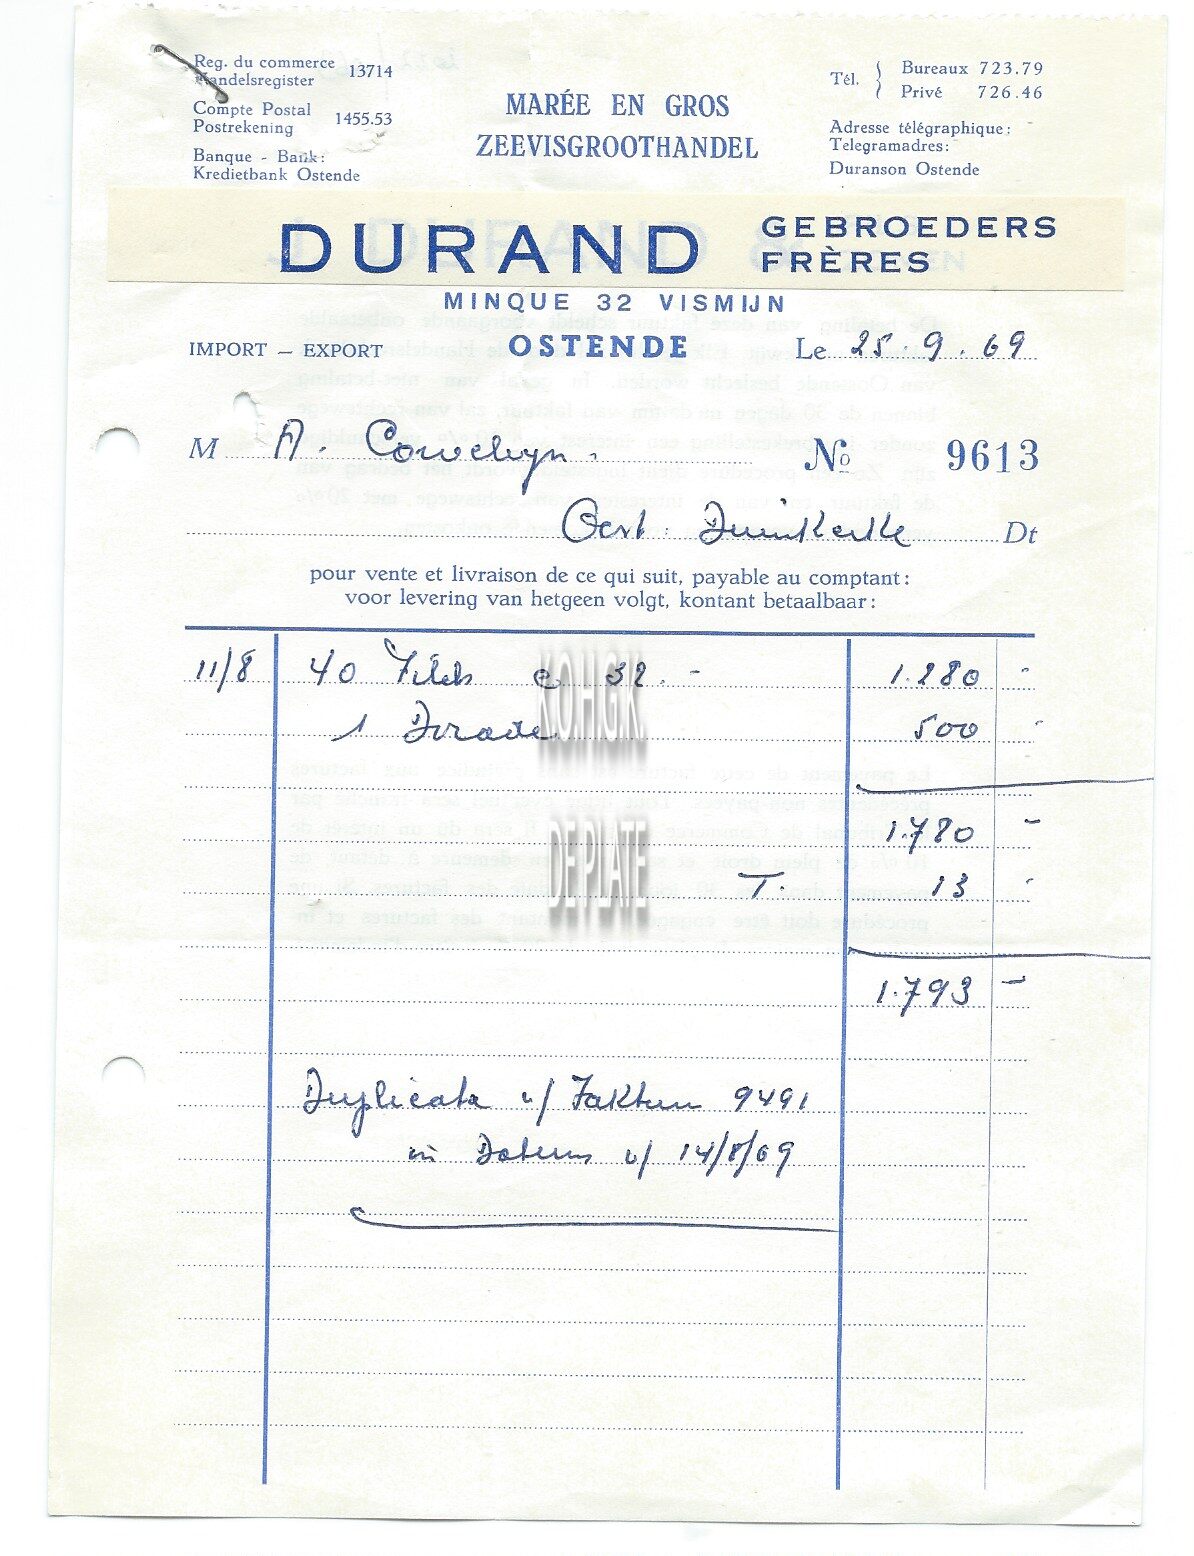 Reg. du commerce
Handelsregister 13714
Compte Postal
Postrekening 1455.53
Banque - Bank:
Kredietbank Ostende
MARÉE EN GROS
ZEEVISGROOTHANDEL
Tél. { Bureaux 723.79
Privé 726.46
Adresse télégraphique:
Telegramadres:
Duranson Ostende
DURAND GEBROEDERS
FRÈRES
MINQUE 32 VISMIJN
IMPORT – EXPORT
OSTENDE
Le 25.9.69
M A. Couvelyn. No 9613
Oost. Duinkerke Dt
pour vente et livraison de ce qui suit, payable au comptant:
voor levering van hetgeen volgt, kontant betaalbaar:
11/8 40 Filets e 32.- 1.280 -
1 Dorade 500 -
1.780 -
T. 13 -
1.793 -
Duplicata v/ Faktuur 9491
in Datum v/ 14/8/69
KO.HGK
DE PLATE